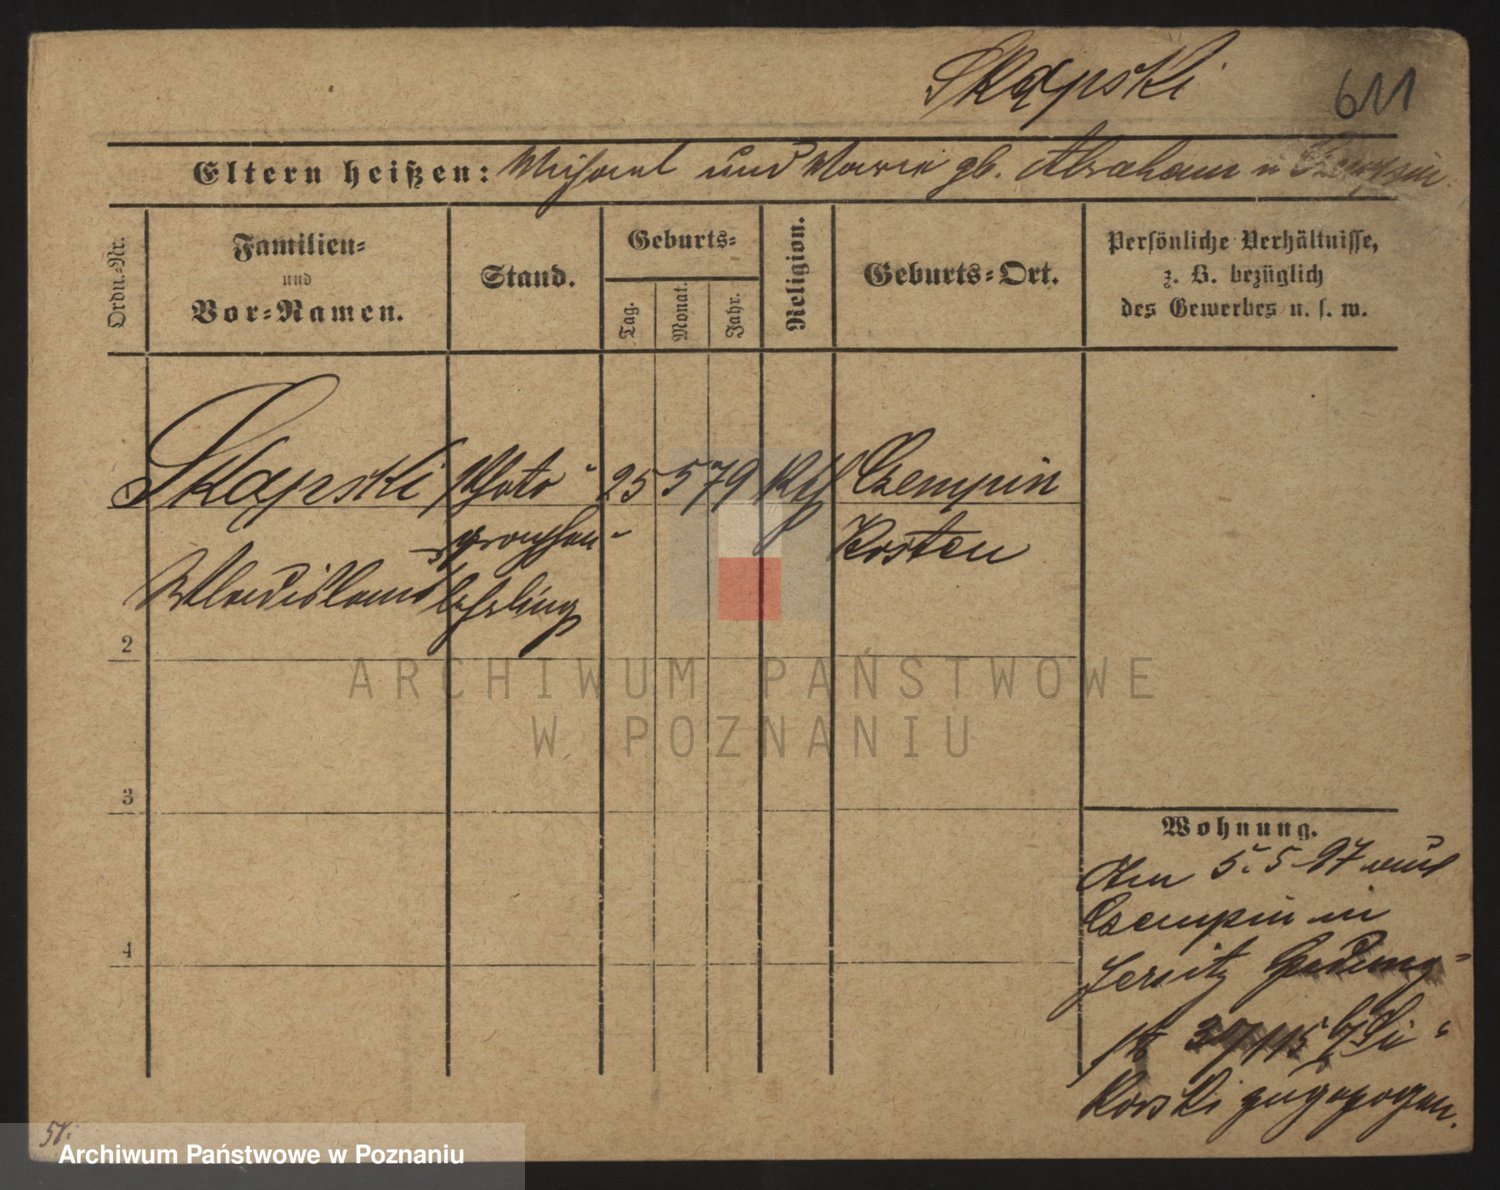 Skąpski 611
Eltern heißen: Michael und Marie gb. Abraham in Czempin.
Ordn.-Nr.
Familien-
und
Vor-Namen.
Stand.
Geburts-
Tag.
Monat.
Jahr.
Religion.
Geburts-Ort.
Persönliche Verhältnisse,
z. B. bezüglich
des Gewerbes u. s. w.
Skąpski Photo- 25 5 79 Kth Czempin
graphen- Kosten
Wladislaus lehrling
2
3
4
Wohnung.
Am 5.5.97 aus
Czempin in
Jersitz
st 115 b/Si-
korski zugezogen.
ARCHIWUM PAŃSTWOWE
W POZNANIU
58.
Archiwum Państwowe w Poznaniu